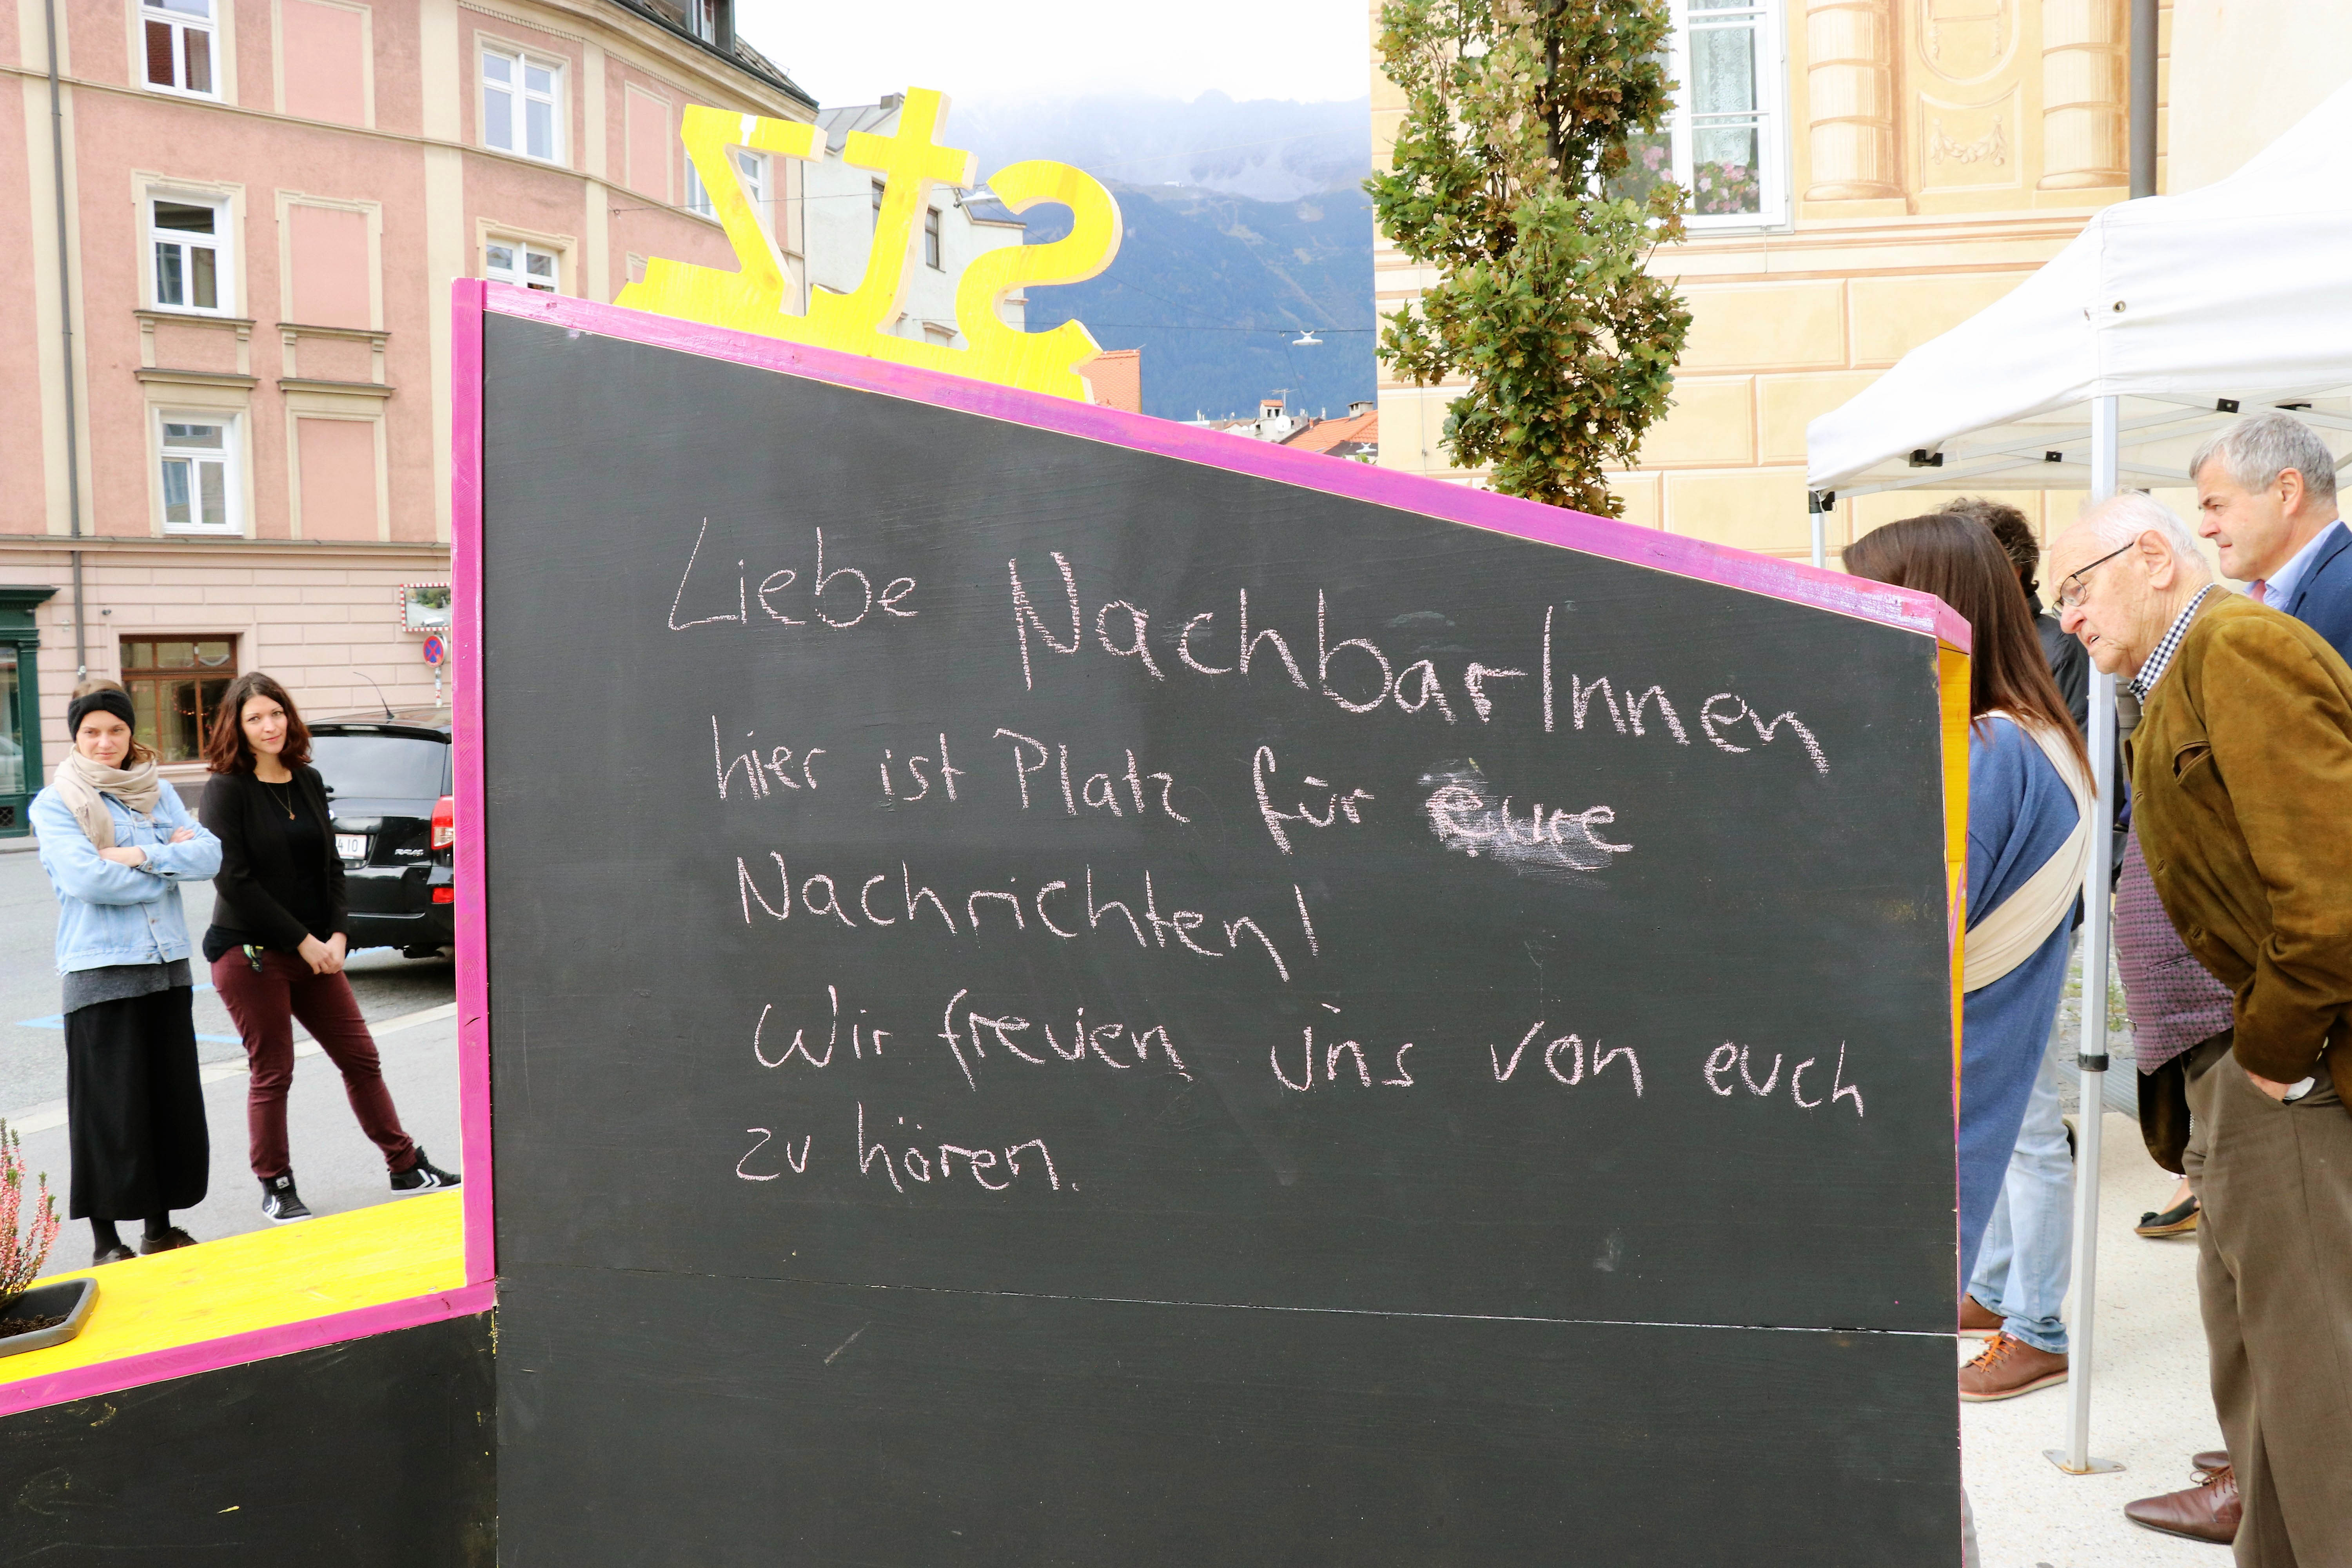 Liebe NachbarInnen
hier ist Platz für eure
Nachrichten!
Wir freuen uns von euch
zu hören.